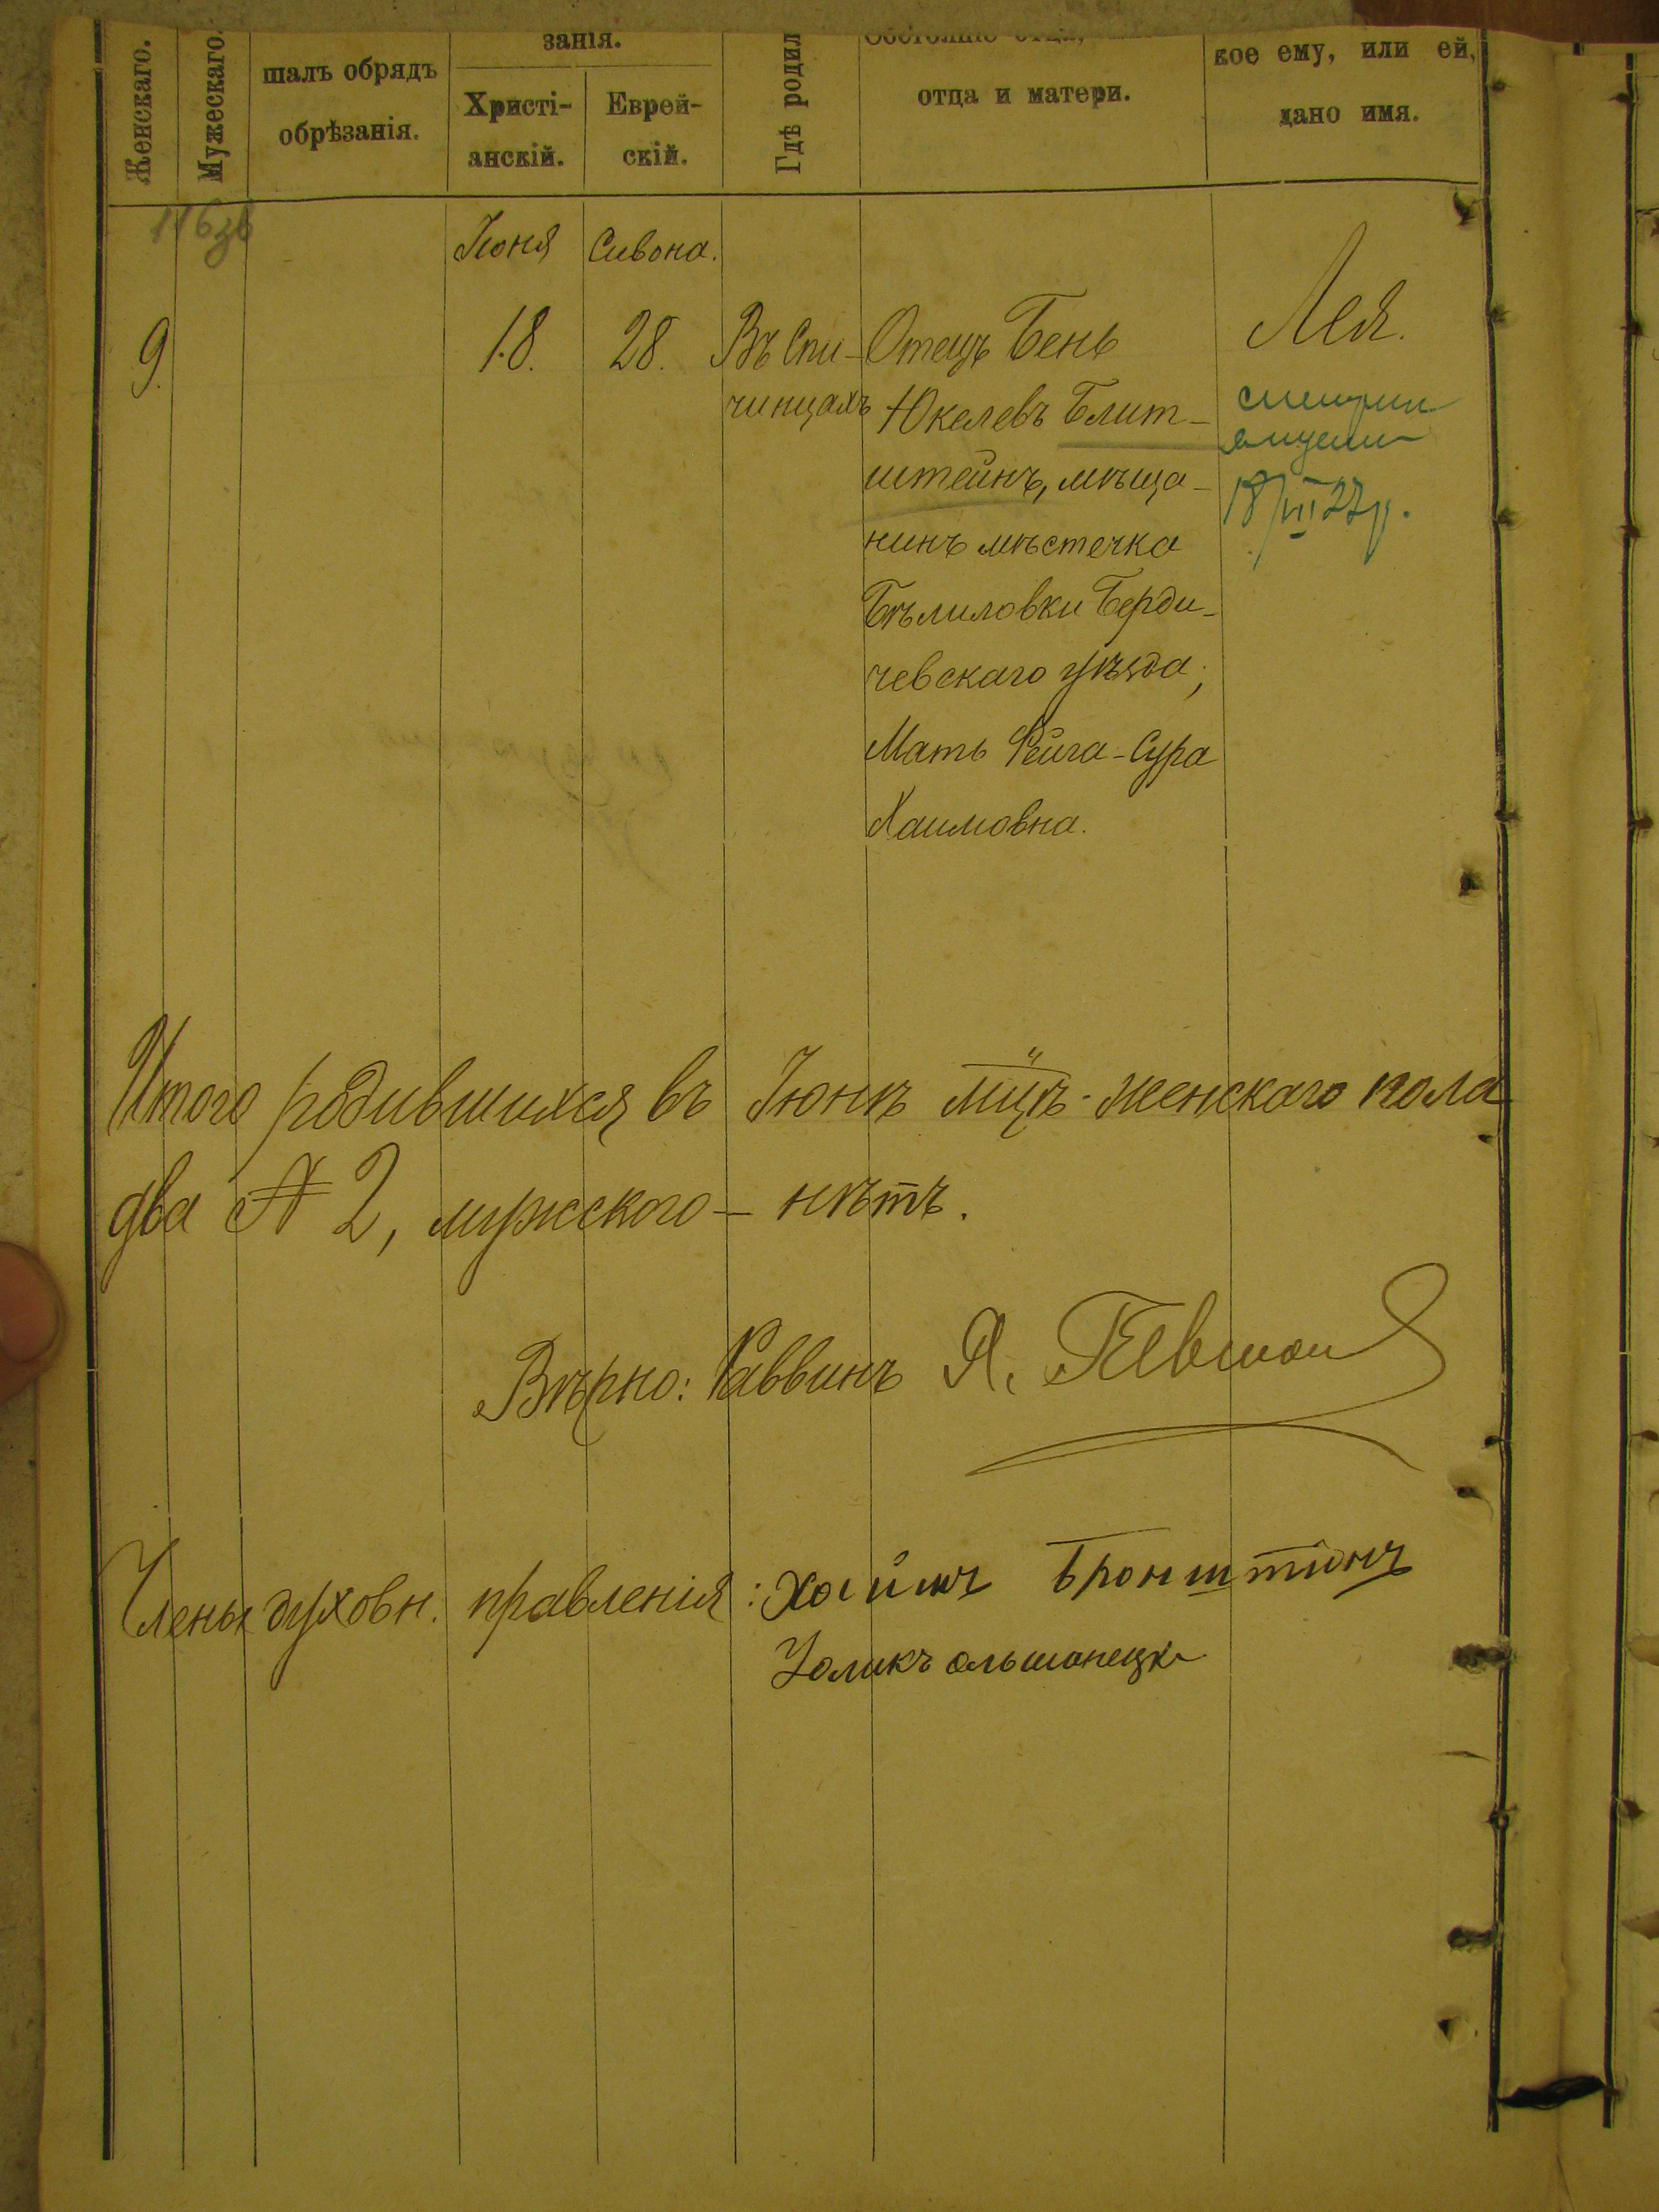 Женскаго.
Мужескаго.
шалъ обрядъ
обрѣзанія.
занія.
Христі-
анскій.
Еврей-
скій.
Гдѣ родил
Состояніе отца,
отца и матери.
кое ему, или ей,
дано имя.
Іюня
Сивона.
9.
18.
28.
Въ Спи-
чинцахъ
Отецъ Бень
Юкелевъ Блит-
штейнъ, мѣща-
нинъ мѣстечка
Бѣлиловки Берди-
чевскаго уѣзда;
Мать Фейга-Сура
Хаимовна.
Лея.
18/VII 27р.
Итого родившихся въ Іюнѣ мцѣ женскаго пола
два № 2, мужского — нѣтъ.
Вѣрно: Раввинъ Я.
Члены духовн. правленія: Хаймъ Бронштинъ
Золикъ ольшанецки